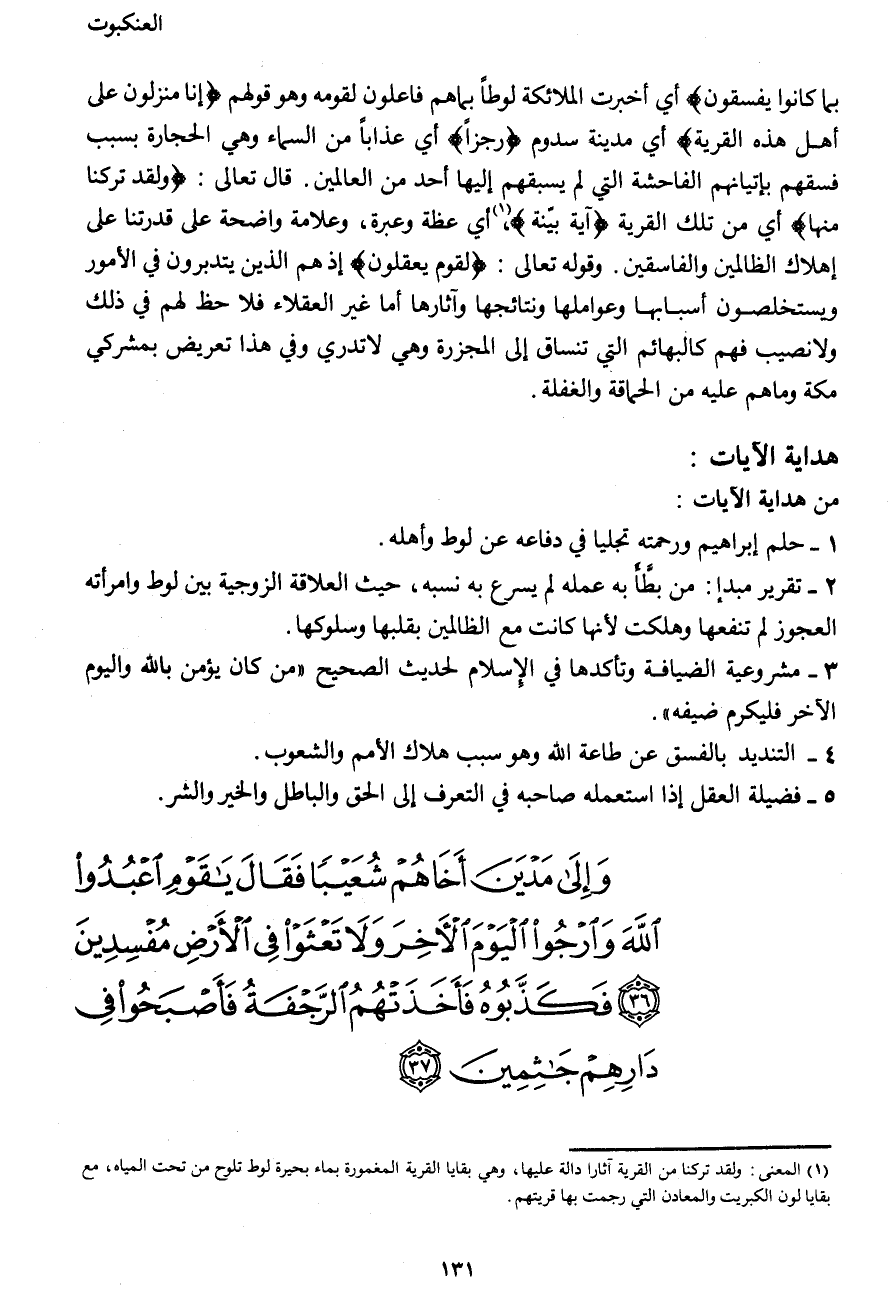 العنكبوت
بما كانوا يفسقون﴾ أي أخبرت الملائكة لوطاً بماهم فاعلون لقومه وهو قولهم ﴿إنا منزلون على
أهل هذه القرية﴾ أي مدينة سدوم ﴿رجزاً﴾ أي عذاباً من السماء وهي الحجارة بسبب
فسقهم بإتيانهم الفاحشة التي لم يسبقهم إليها أحد من العالمين. قال تعالى : ﴿ولقد تركنا
منها﴾ أي من تلك القرية ﴿آية بيّنة﴾،(١) أي عظة وعبرة، وعلامة واضحة على قدرتنا على
إهلاك الظالمين والفاسقين. وقوله تعالى : ﴿لقوم يعقلون﴾ إذ هم الذين يتدبرون في الأمور
ويستخلصون أسبابها وعواملها ونتائجها وآثارها أما غير العقلاء فلا حظ لهم في ذلك
ولانصيب فهم كالبهائم التي تنساق إلى المجزرة وهي لاتدري وفي هذا تعريض بمشركي
مكة وماهم عليه من الحماقة والغفلة.
هداية الآيات :
من هداية الآيات :
١ ـ حلم إبراهيم ورحمته تجليا في دفاعه عن لوط وأهله.
٢ ـ تقرير مبدإ: من بطَّأ به عمله لم يسرع به نسبه، حيث العلاقة الزوجية بين لوط وامرأته
العجوز لم تنفعها وهلكت لأنها كانت مع الظالمين بقلبها وسلوكها.
٣ ـ مشروعية الضيافة وتأكدها في الإسلام لحديث الصحيح «من كان يؤمن بالله واليوم
الآخر فليكرم ضيفه».
٤ ـ التنديد بالفسق عن طاعة الله وهو سبب هلاك الأمم والشعوب.
٥ ـ فضيلة العقل إذا استعمله صاحبه في التعرف إلى الحق والباطل والخير والشر.
وَإِلَىٰ مَدْيَنَ أَخَاهُمْ شُعَيْبًا فَقَالَ يَٰقَوْمِ ٱعْبُدُوا۟
ٱللَّهَ وَٱرْجُوا۟ ٱلْيَوْمَ ٱلْأَخِرَ وَلَا تَعْثَوْا۟ فِى ٱلْأَرْضِ مُفْسِدِينَ
٣٦ فَكَذَّبُوهُ فَأَخَذَتْهُمُ ٱلرَّجْفَةُ فَأَصْبَحُوا۟ فِى
دَارِهِمْ جَٰثِمِينَ ٣٧
(١) المعنى : ولقد تركنا من القرية آثارا دالة عليها، وهي بقايا القرية المغمورة بماء بحيرة لوط تلوح من تحت المياه، مع
بقايا لون الكبريت والمعادن التي رجمت بها قريتهم.
١٣١